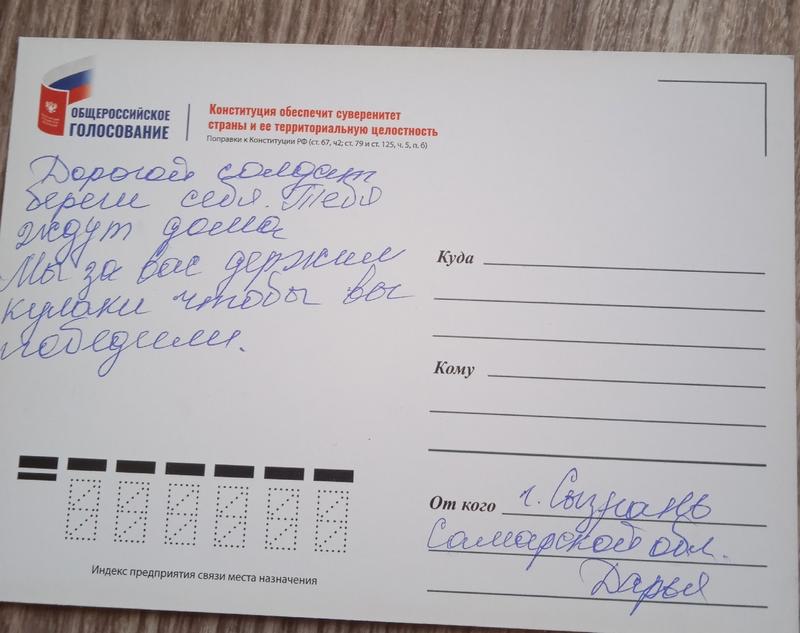 ОБЩЕРОССИЙСКОЕ
ГОЛОСОВАНИЕ
Конституция обеспечит суверенитет
страны и ее территориальную целостность
Поправки к Конституции РФ (ст. 67, ч2; ст. 79 и ст. 125, ч. 5, п. б)
Дорогой солдат
береги себя. Тебя
ждут дома
Мы за вас держим
кулаки чтобы вы
победили.
Куда
Кому
От кого г. Сызрань
Самарской обл.
Дарья
Индекс предприятия связи места назначения